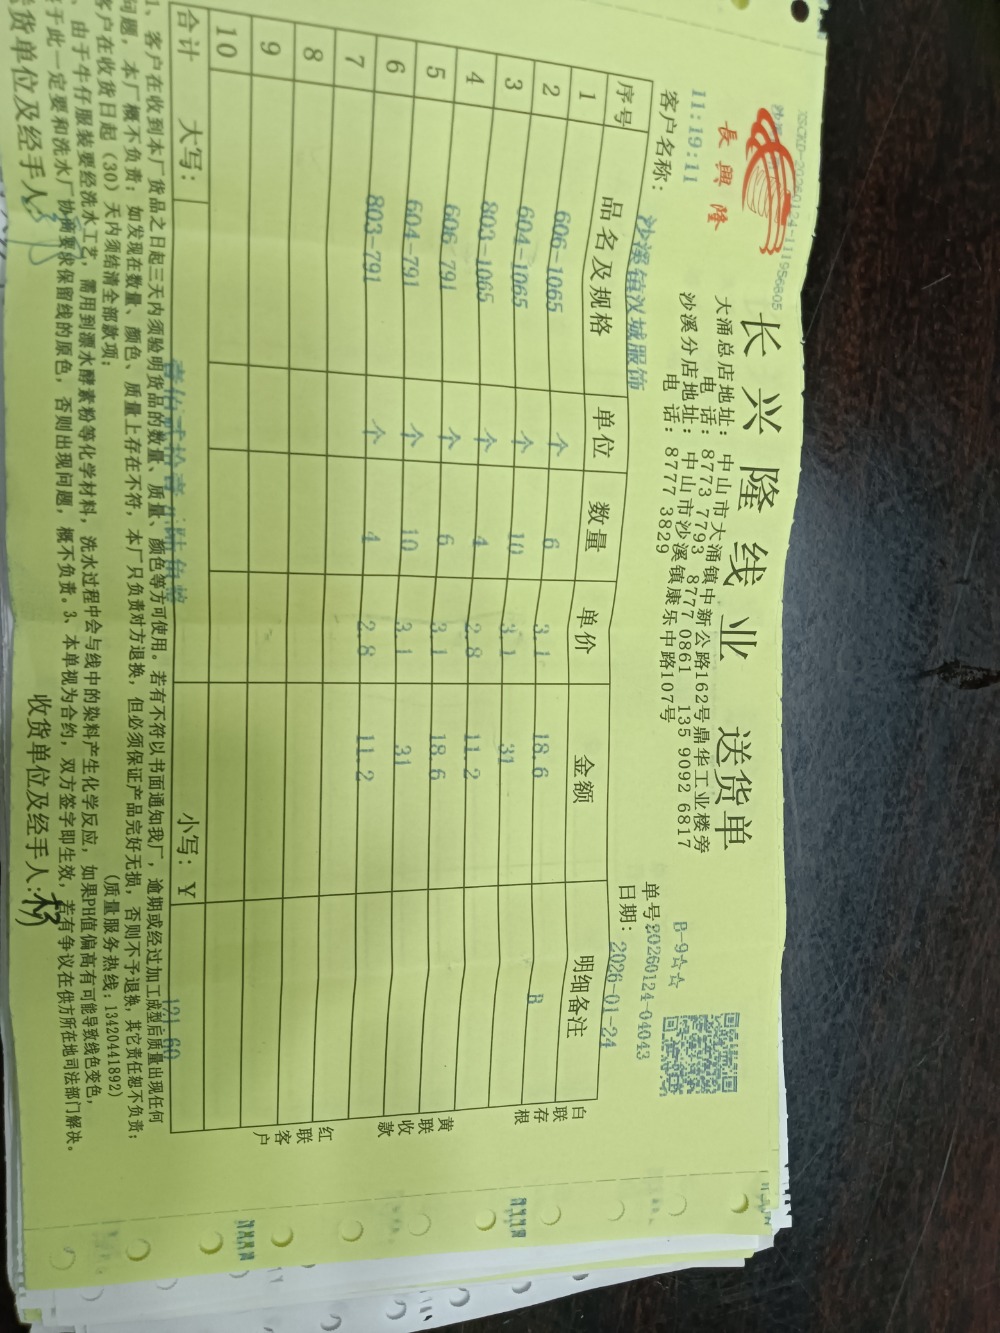 XSCKD-20260124-111956805
11:19:11
長興隆
长兴隆线业 送货单
大涌总店地址：中山市大涌镇中新公路162号鼎华工业楼旁
电 话：8773 7793 8777 0861 135 9092 6817
沙溪分店地址：中山市沙溪镇康乐中路107号
电 话：8777 3829
B-9☆☆
单号：20260124-04043
客户名称：沙溪镇汉城服饰
日期：2026-01-24
序号 品名及规格 单位 数量 单价 金额 明细备注
1 606-1065 个 6 3.1 18.6 B
2 604-1065 个 10 3.1 31
3 803-1065 个 4 2.8 11.2
4 606-791 个 6 3.1 18.6
5 604-791 个 10 3.1 31
6 803-791 个 4 2.8 11.2
7
8
9
10
合计 大写：壹佰贰拾壹元陆角整 小写：￥ 121.60
白联存根
黄联收款
红联客户
1、客户在收到本厂货品之日起三天内须验明货品的数量、质量、颜色等方可使用。若有不符以书面通知我厂，逾期或经过加工成型后质量出现任何
问题，本厂概不负责；如发现在数量、颜色、质量上存在不符，本厂只负责对方退换，但必须保证产品完好无损，否则不予退换，其它责任恕不负责；
客户在收货日起（30）天内须结清全部款项； （质量服务热线：13420441892）
、由于牛仔服装要经洗水工艺，需用到漂水酵素粉等化学材料，洗水过程中会与线中的染料产生化学反应，如果PH值偏高有可能导致线色变色，
于此一定要和洗水厂协商要求保留线的原色，否则出现问题，概不负责。3、本单视为合约，双方签字即生效，若有争议在供方所在地司法部门解决。
货单位及经手人 收货单位及经手人：杨